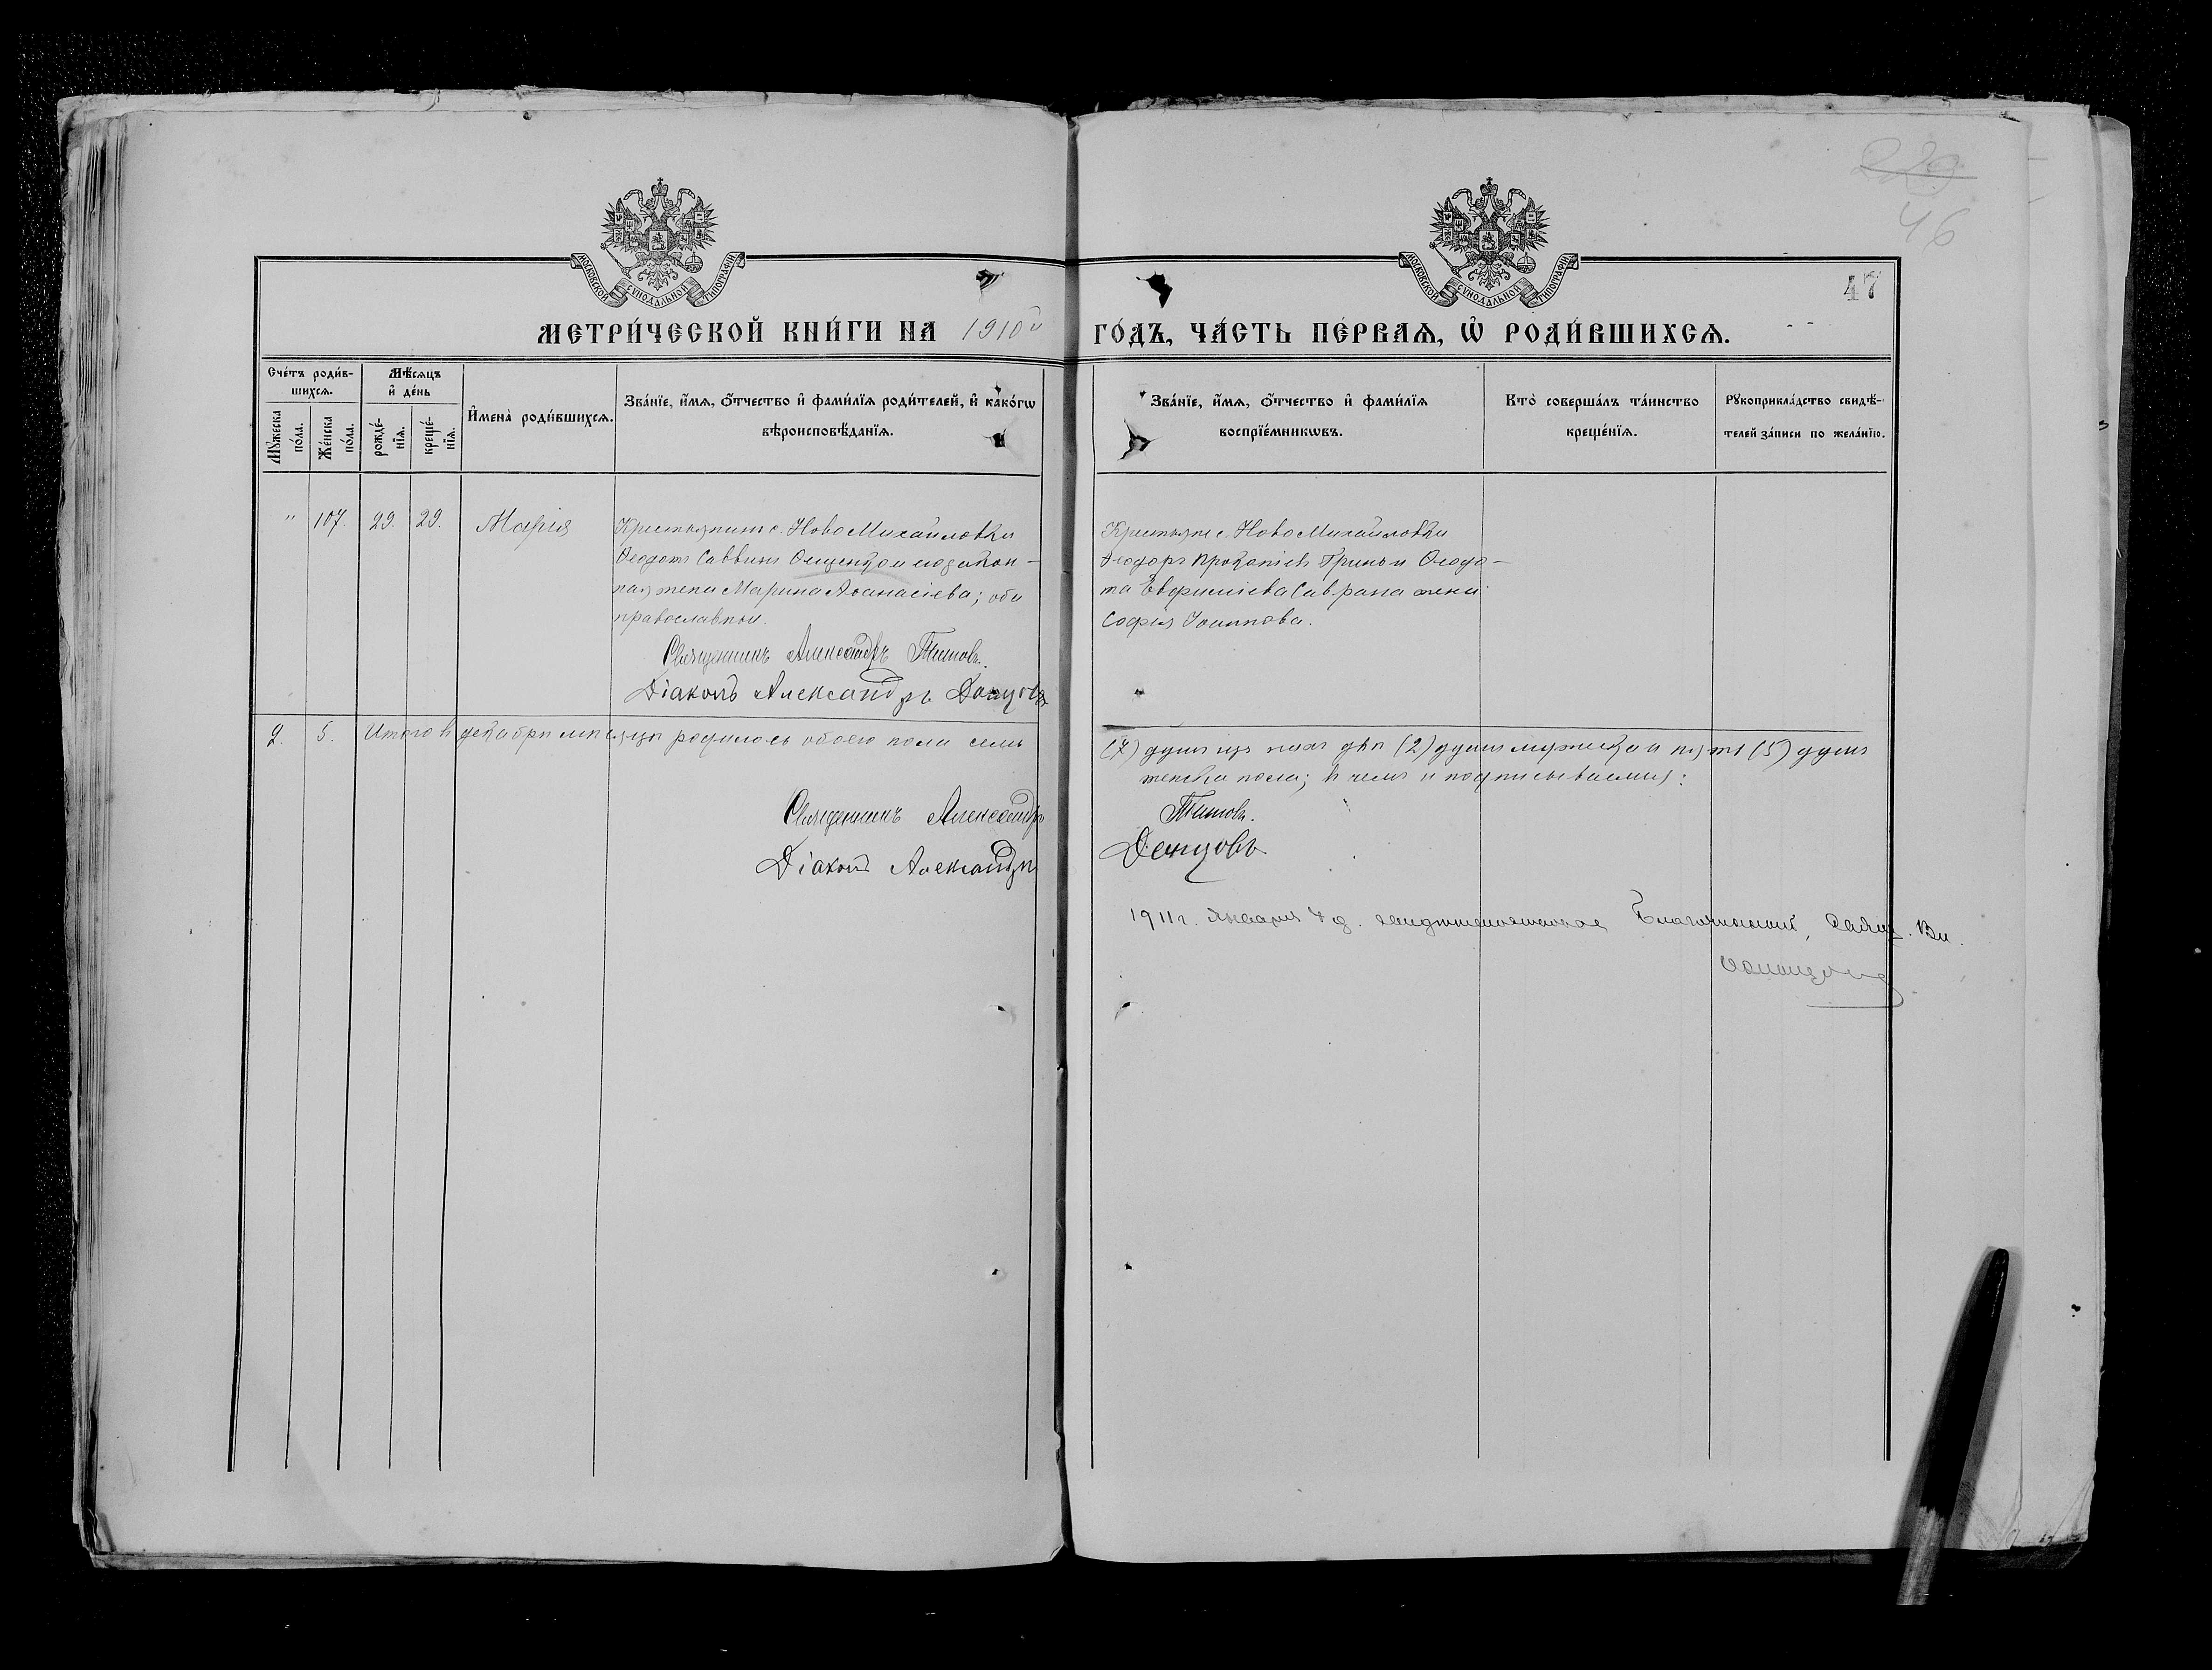 229
46
47
МОСКОВСКОЙ СѴНОДАЛЬНОЙ ТИПОГРАФІИ
МОСКОВСКОЙ СѴНОДАЛЬНОЙ ТИПОГРАФІИ
МЕТРИ́ЧЕСКОЙ КНИ́ГИ НА 1910й ГО́ДЪ, ЧА́СТЬ ПЕ́РВАѦ, Ѡ҆ РОДИ́ВШИХСѦ.
Сче́тъ роди́в-
шихсѧ.
Мꙋ́жеска по́ла.
Же́нска по́ла.
Мѣ́сѧцъ
и҆ де́нь
рожде́-
нїѧ.
креще́-
нїѧ.
И҆мена̀ роди́вшихсѧ.
Зва́нїе, и҆́мѧ, ѻ҆́тчество и҆ фами́лїѧ роди́телей, и҆ како́гѡ
вѣроисповѣ́данїѧ.
Зва́нїе, и҆́мѧ, ѻ҆́тчество и҆ фами́лїѧ
воспрїе́мникѡвъ.
Кто̀ соверша́лъ та́инство
креще́нїѧ.
Рꙋкоприкла́дство свидѣ́-
телей за́писи по жела́нїю.
" 107. 29. 29. Марія
Крестьянинъ с. Ново Михайловки
Ѳеодотъ Саввинъ и закон-
ная жена Марина Аѳанасіева; оба
православные.
Священникъ Александръ Титовъ.
Діаконъ Александръ Донцовъ
Крестьяне с. Ново Михайловки
Ѳеодоръ Прокопіевъ Гринь и Ѳеодо-
та Евфиміева Саврана жена
София
2. 5. Итого въ декабрѣ мѣсяцѣ родилось обоего пола семь
(7) душъ изъ нихъ двѣ (2) душъ мужеска и пять (5) душъ
женска пола; въ чемъ и подписываемся:
Священникъ Александръ Титовъ.
Діаконъ Александръ Донцовъ
1911 г. Января 4 д. Благочинный, Вл.